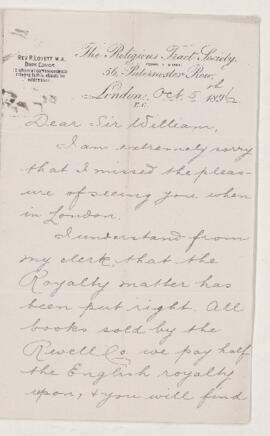 The Religious Tract Society.
REV. R. LOVETT M.A.
BOOK EDITOR
56, Paternoster Row,
London, Oct. 5th 1892
E.C.
Dear Sir William,
I am extremely sorry
that I missed the pleas-
ure of seeing you when
in London.
I understand from
my clerk that the
Royalty matter has
been put right. All
books sold by the
Revell Co. we pay half
the English royalty
upon, & you will find